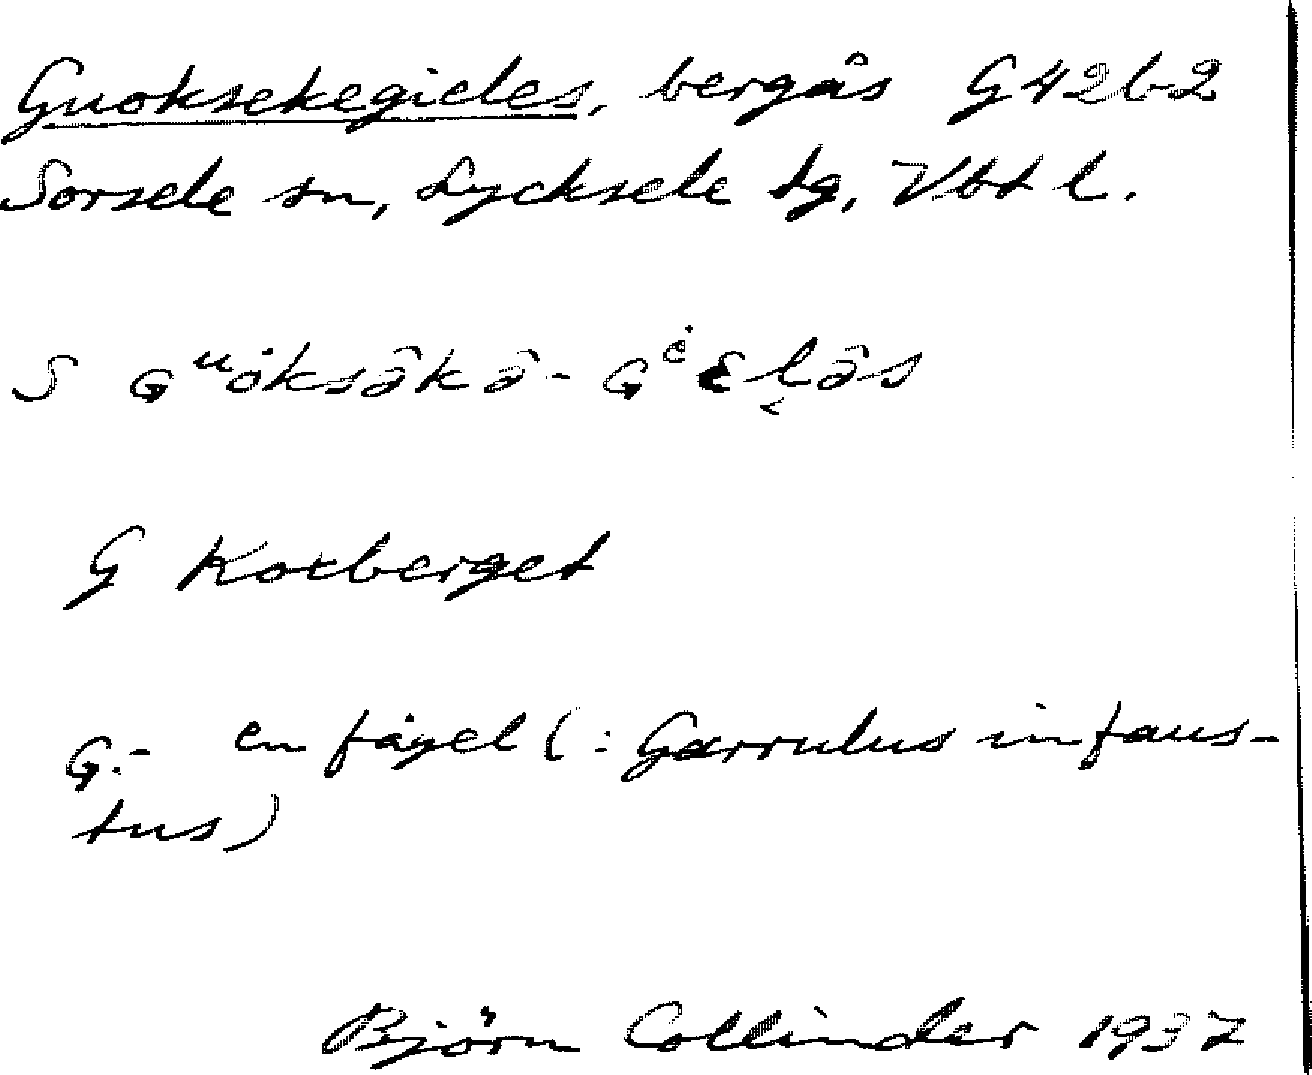 Guoksekegieles, bergås G42b2
Sorsele sn, Lycksele tg, Vbtl.
S Gᵘȯksâkâ- Gėɛl̜âs
G Koxberget
G.- en fågel (: Garrulus infaus-
tus)
Björn Collinder 1937